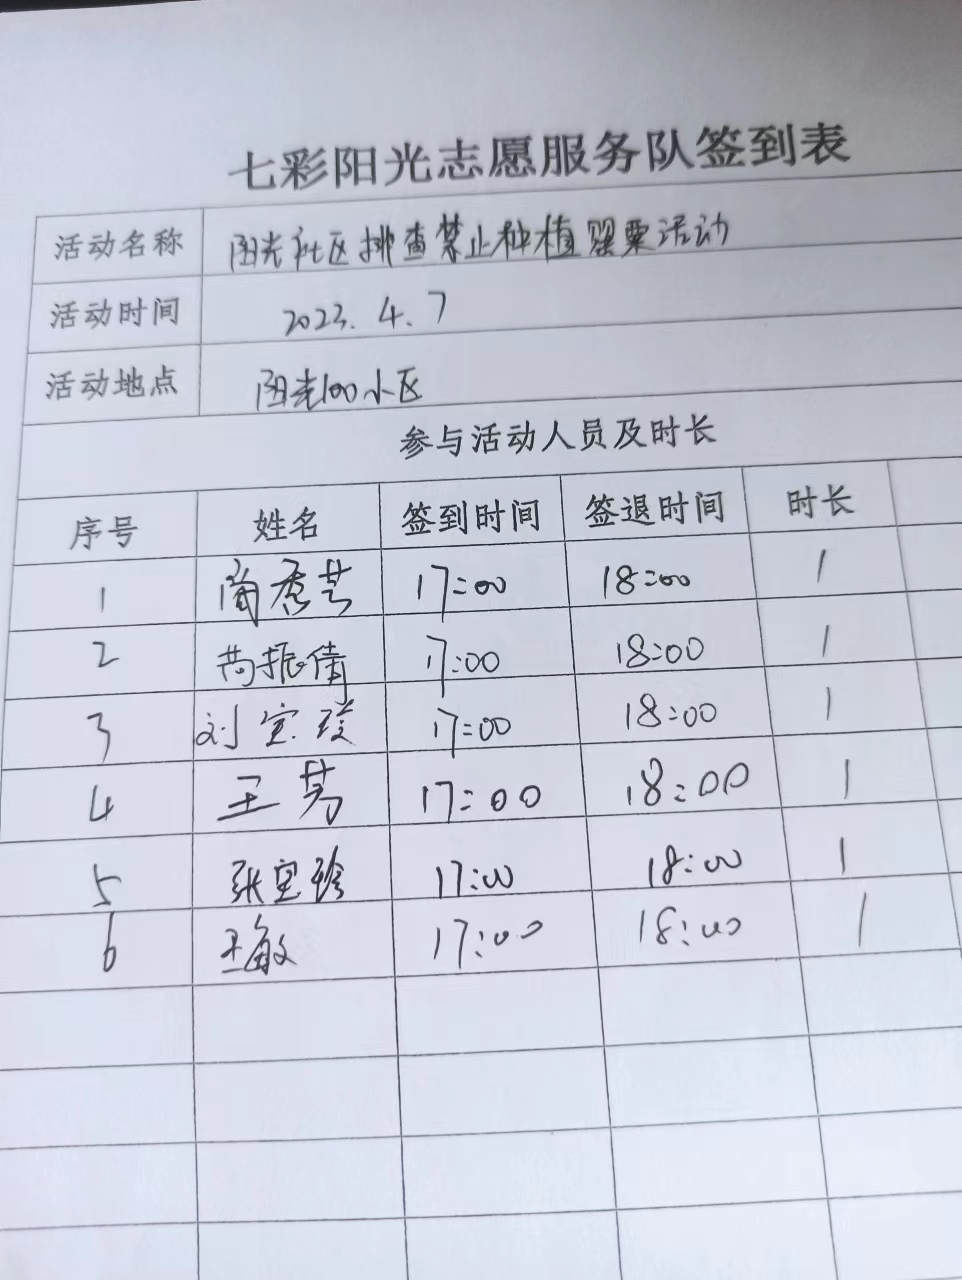 七彩阳光志愿服务队签到表
活动名称 阳光社区排查禁止种植罂粟活动
活动时间 2023.4.7
活动地点 阳光100小区
参与活动人员及时长
序号 姓名 签到时间 签退时间 时长
1 17:00 18:00 1
2 振倩 17:00 18:00 1
3 刘宝 17:00 18:00 1
4 王 17:00 18:00 1
5 张宝珍 17:00 18:00 1
6 王敏 17:00 18:00 1